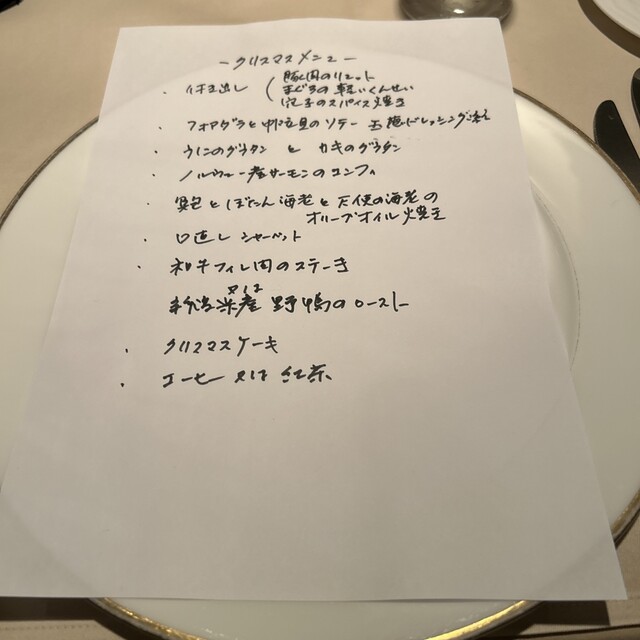 ークリスマスメニュー
・付き出し 豚肉のリエット
まぐろの軽いくんせい
穴子のスパイス焼き
・フォアグラと帆立貝のソテー ドレッシング添え
・うにのグラタン と カキのグラタン
・ノルウェー産サーモンのコンフィ
・鮑とぼたん海老と天使の海老の
オリーブオイル焼き
・口直し シャーベット
・和牛フィレ肉のステーキ
又は
新潟県産 野鴨のロースト
・クリスマスケーキ
・コーヒー 又は 紅茶